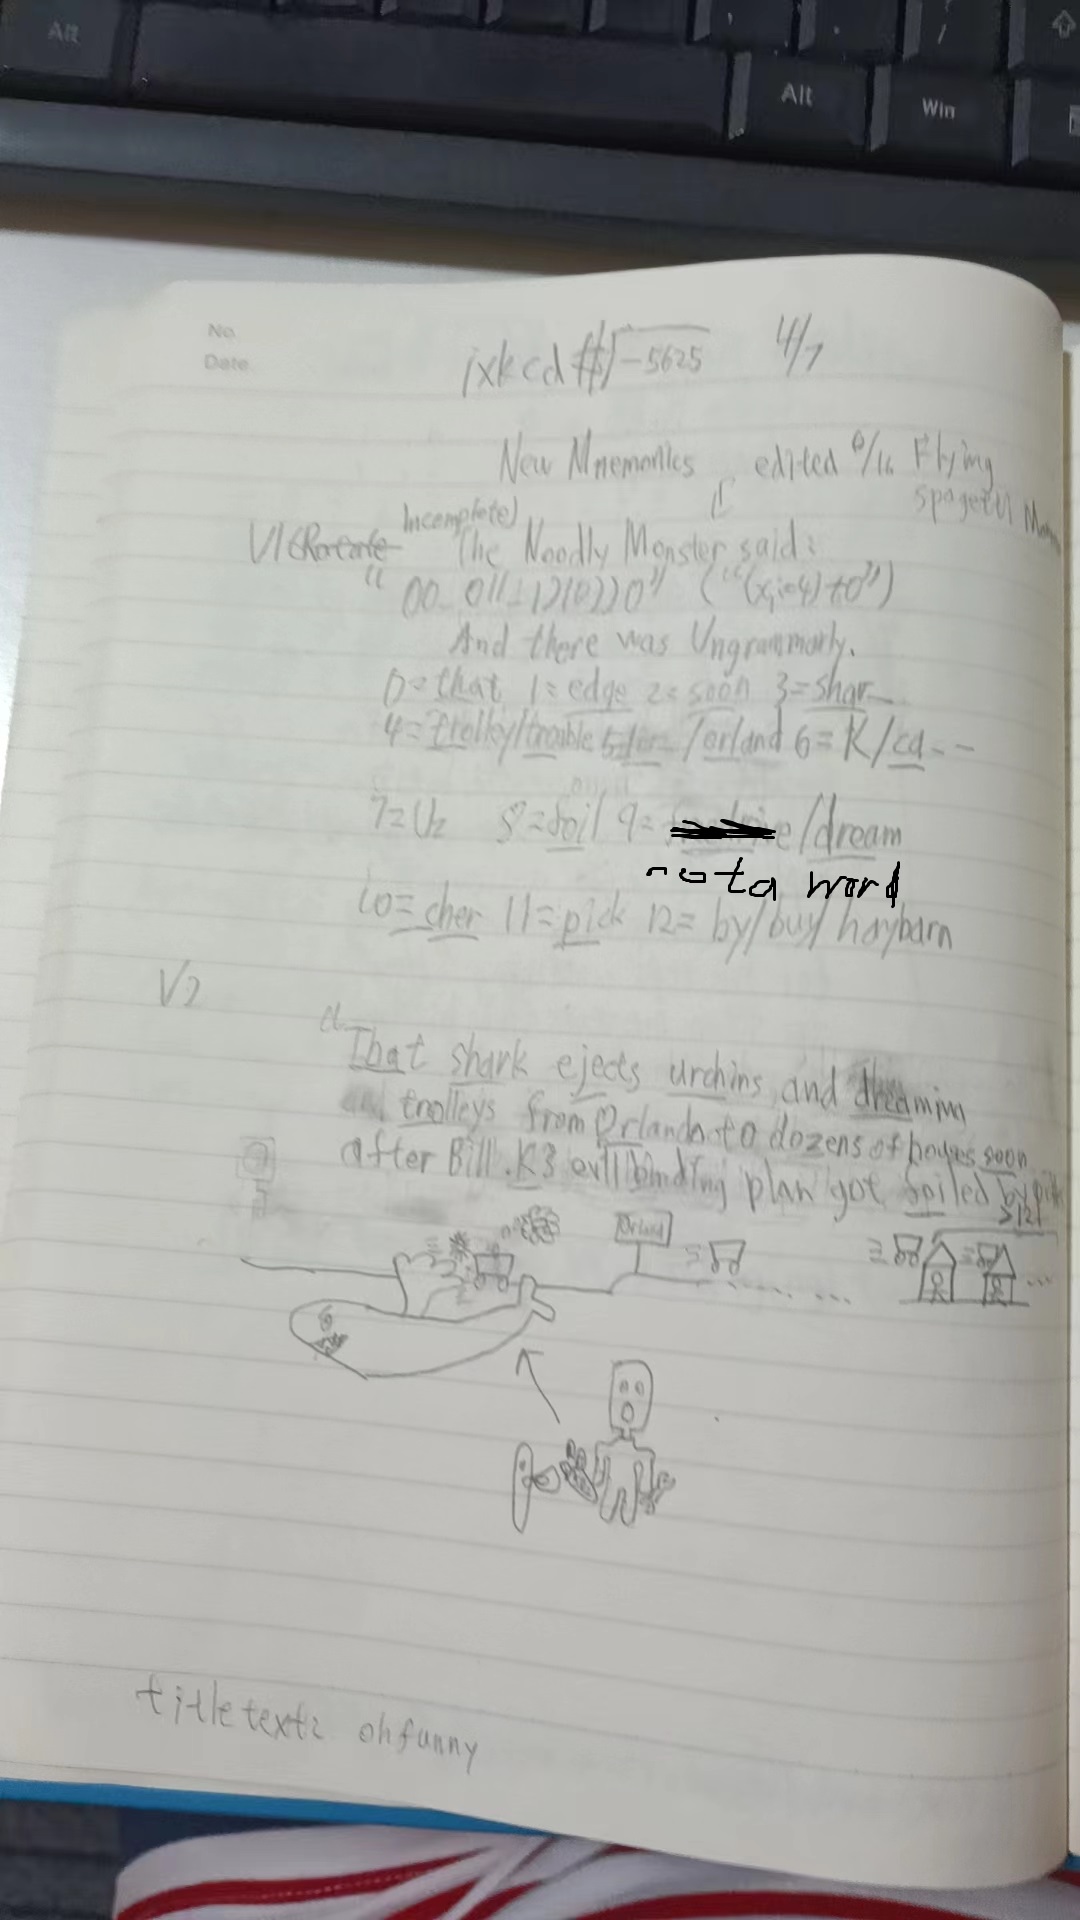 Alt
Alt
Win
No.
Date
ixkcd #√-5625 4/7
New Mnemonics edited Flying
Incomplete) spagetti
V1 (Rotate The Noodly Monster said:
And there was Ungrammarly.
0=that 1=edge 2=soon 3=shar_
4=trolley/trouble /orland 6=K/ca--
8=foil 9= e/dream
not a word
10=cher 11=pick 12=by/buy/haybarn
V2
"That shark ejects urchins and dreaming
trolleys from Orlando to dozens of houses soon
after Bill.K's evil binding plan got foiled by
Orland
title text: oh funny